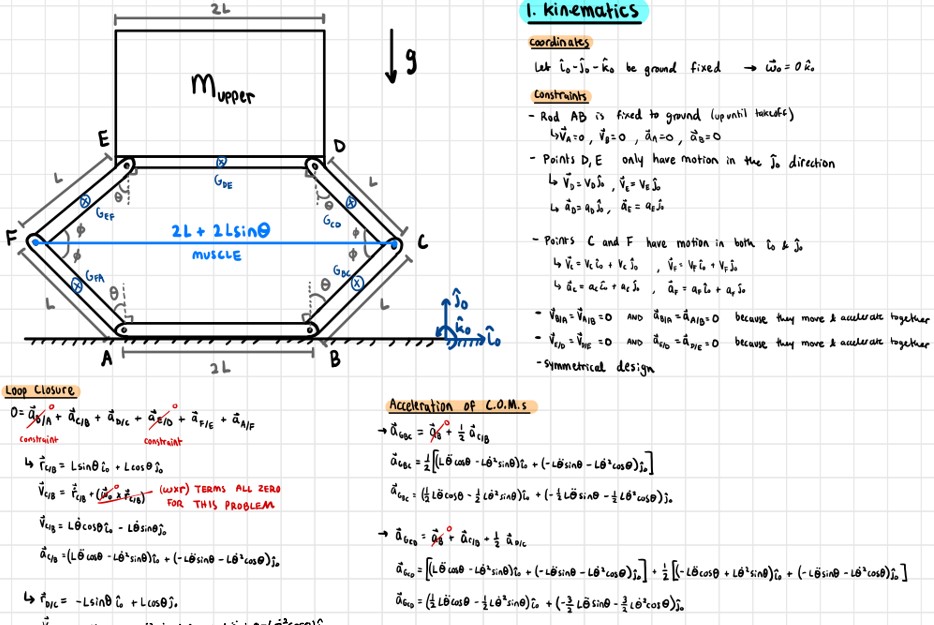 2L
g
Mupper
E
D
L
L
θ
G_DE
θ
G_EF
G_CD
ϕ
ϕ
F
2L + 2Lsinθ
C
MUSCLE
ϕ
ϕ
G_FA
G_BC
θ
θ
L
L
ĵ₀
k̂₀
î₀
A
B
2L
1. Kinematics
Coordinates
Let î₀-ĵ₀-k̂₀ be ground fixed → ω⃗₀ = 0 k̂₀
Constraints
- Rod AB is fixed to ground (up until takeoff)
↳ v⃗_A=0 , v⃗_B=0 , a⃗_A=0 , a⃗_B=0
- Points D, E only have motion in the ĵ₀ direction
↳ v⃗_D = v_D ĵ₀ , v⃗_E = v_E ĵ₀
↳ a⃗_D = a_D ĵ₀ , a⃗_E = a_E ĵ₀
- Points C and F have motion in both î₀ & ĵ₀
↳ v⃗_C = v_C î₀ + v_C ĵ₀ , v⃗_F = v_F î₀ + v_F ĵ₀
↳ a⃗_C = a_C î₀ + a_C ĵ₀ , a⃗_F = a_F î₀ + a_F ĵ₀
- v⃗_B/A = v⃗_A/B = 0 AND a⃗_B/A = a⃗_A/B = 0 because they move & accelerate together
- v⃗_E/D = v⃗_D/E = 0 AND a⃗_E/D = a⃗_D/E = 0 because they move & accelerate together
- Symmetrical design
Loop Closure
0 = a⃗_B/A⁰ + a⃗_C/B + a⃗_D/C + a⃗_E/D⁰ + a⃗_F/E + a⃗_A/F
constraint constraint
↳ r⃗_C/B = Lsinθ î₀ + Lcosθ ĵ₀
v⃗_C/B = r⃗̇_C/B + (ω⃗₀ × r⃗_C/B) — (ω×r) TERMS ALL ZERO
FOR THIS PROBLEM
v⃗_C/B = Lθ̇cosθ î₀ - Lθ̇sinθ ĵ₀
a⃗_C/B = (Lθ̈cosθ - Lθ̇²sinθ) î₀ + (-Lθ̈sinθ - Lθ̇²cosθ) ĵ₀
↳ r⃗_D/C = -Lsinθ î₀ + Lcosθ ĵ₀
Acceleration of C.O.M.s
→ a⃗_GBC = a⃗_B⁰ + ½ a⃗_C/B
a⃗_GBC = ½[(Lθ̈cosθ - Lθ̇²sinθ) î₀ + (-Lθ̈sinθ - Lθ̇²cosθ) ĵ₀]
a⃗_GBC = (½Lθ̈cosθ - ½Lθ̇²sinθ) î₀ + (-½Lθ̈sinθ - ½Lθ̇²cosθ) ĵ₀
→ a⃗_GCD = a⃗_B⁰ + a⃗_C/B + ½ a⃗_D/C
a⃗_GCD = [(Lθ̈cosθ - Lθ̇²sinθ) î₀ + (-Lθ̈sinθ - Lθ̇²cosθ) ĵ₀] + ½[(-Lθ̈cosθ + Lθ̇²sinθ) î₀ + (-Lθ̈sinθ - Lθ̇²cosθ) ĵ₀]
a⃗_GCD = (½Lθ̈cosθ - ½Lθ̇²sinθ) î₀ + (-3/2 Lθ̈sinθ - 3/2 Lθ̇²cosθ) ĵ₀